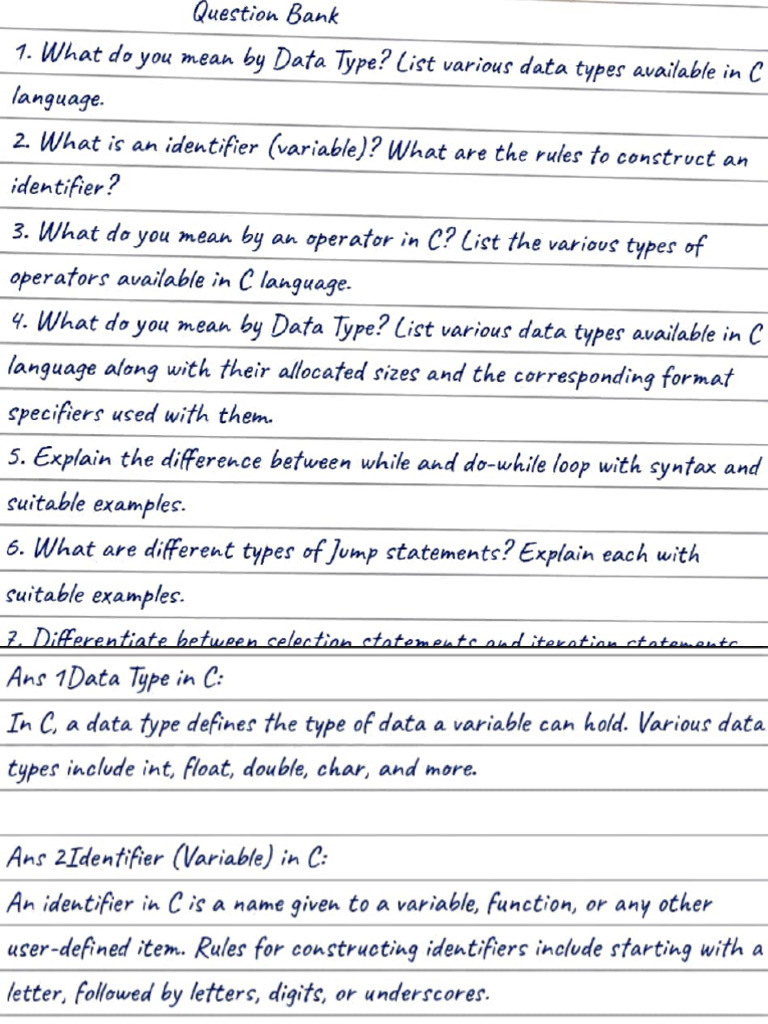 Question Bank
1. What do you mean by Data Type? List various data types available in C
language.
2. What is an identifier (variable)? What are the rules to construct an
identifier?
3. What do you mean by an operator in C? List the various types of
operators available in C language.
4. What do you mean by Data Type? List various data types available in C
language along with their allocated sizes and the corresponding format
specifiers used with them.
5. Explain the difference between while and do-while loop with syntax and
suitable examples.
6. What are different types of Jump statements? Explain each with
suitable examples.
7. Differentiate between selection statements and iteration statements
Ans 1Data Type in C:
In C, a data type defines the type of data a variable can hold. Various data
types include int, float, double, char, and more.
Ans 2Identifier (Variable) in C:
An identifier in C is a name given to a variable, function, or any other
user-defined item. Rules for constructing identifiers include starting with a
letter, followed by letters, digits, or underscores.